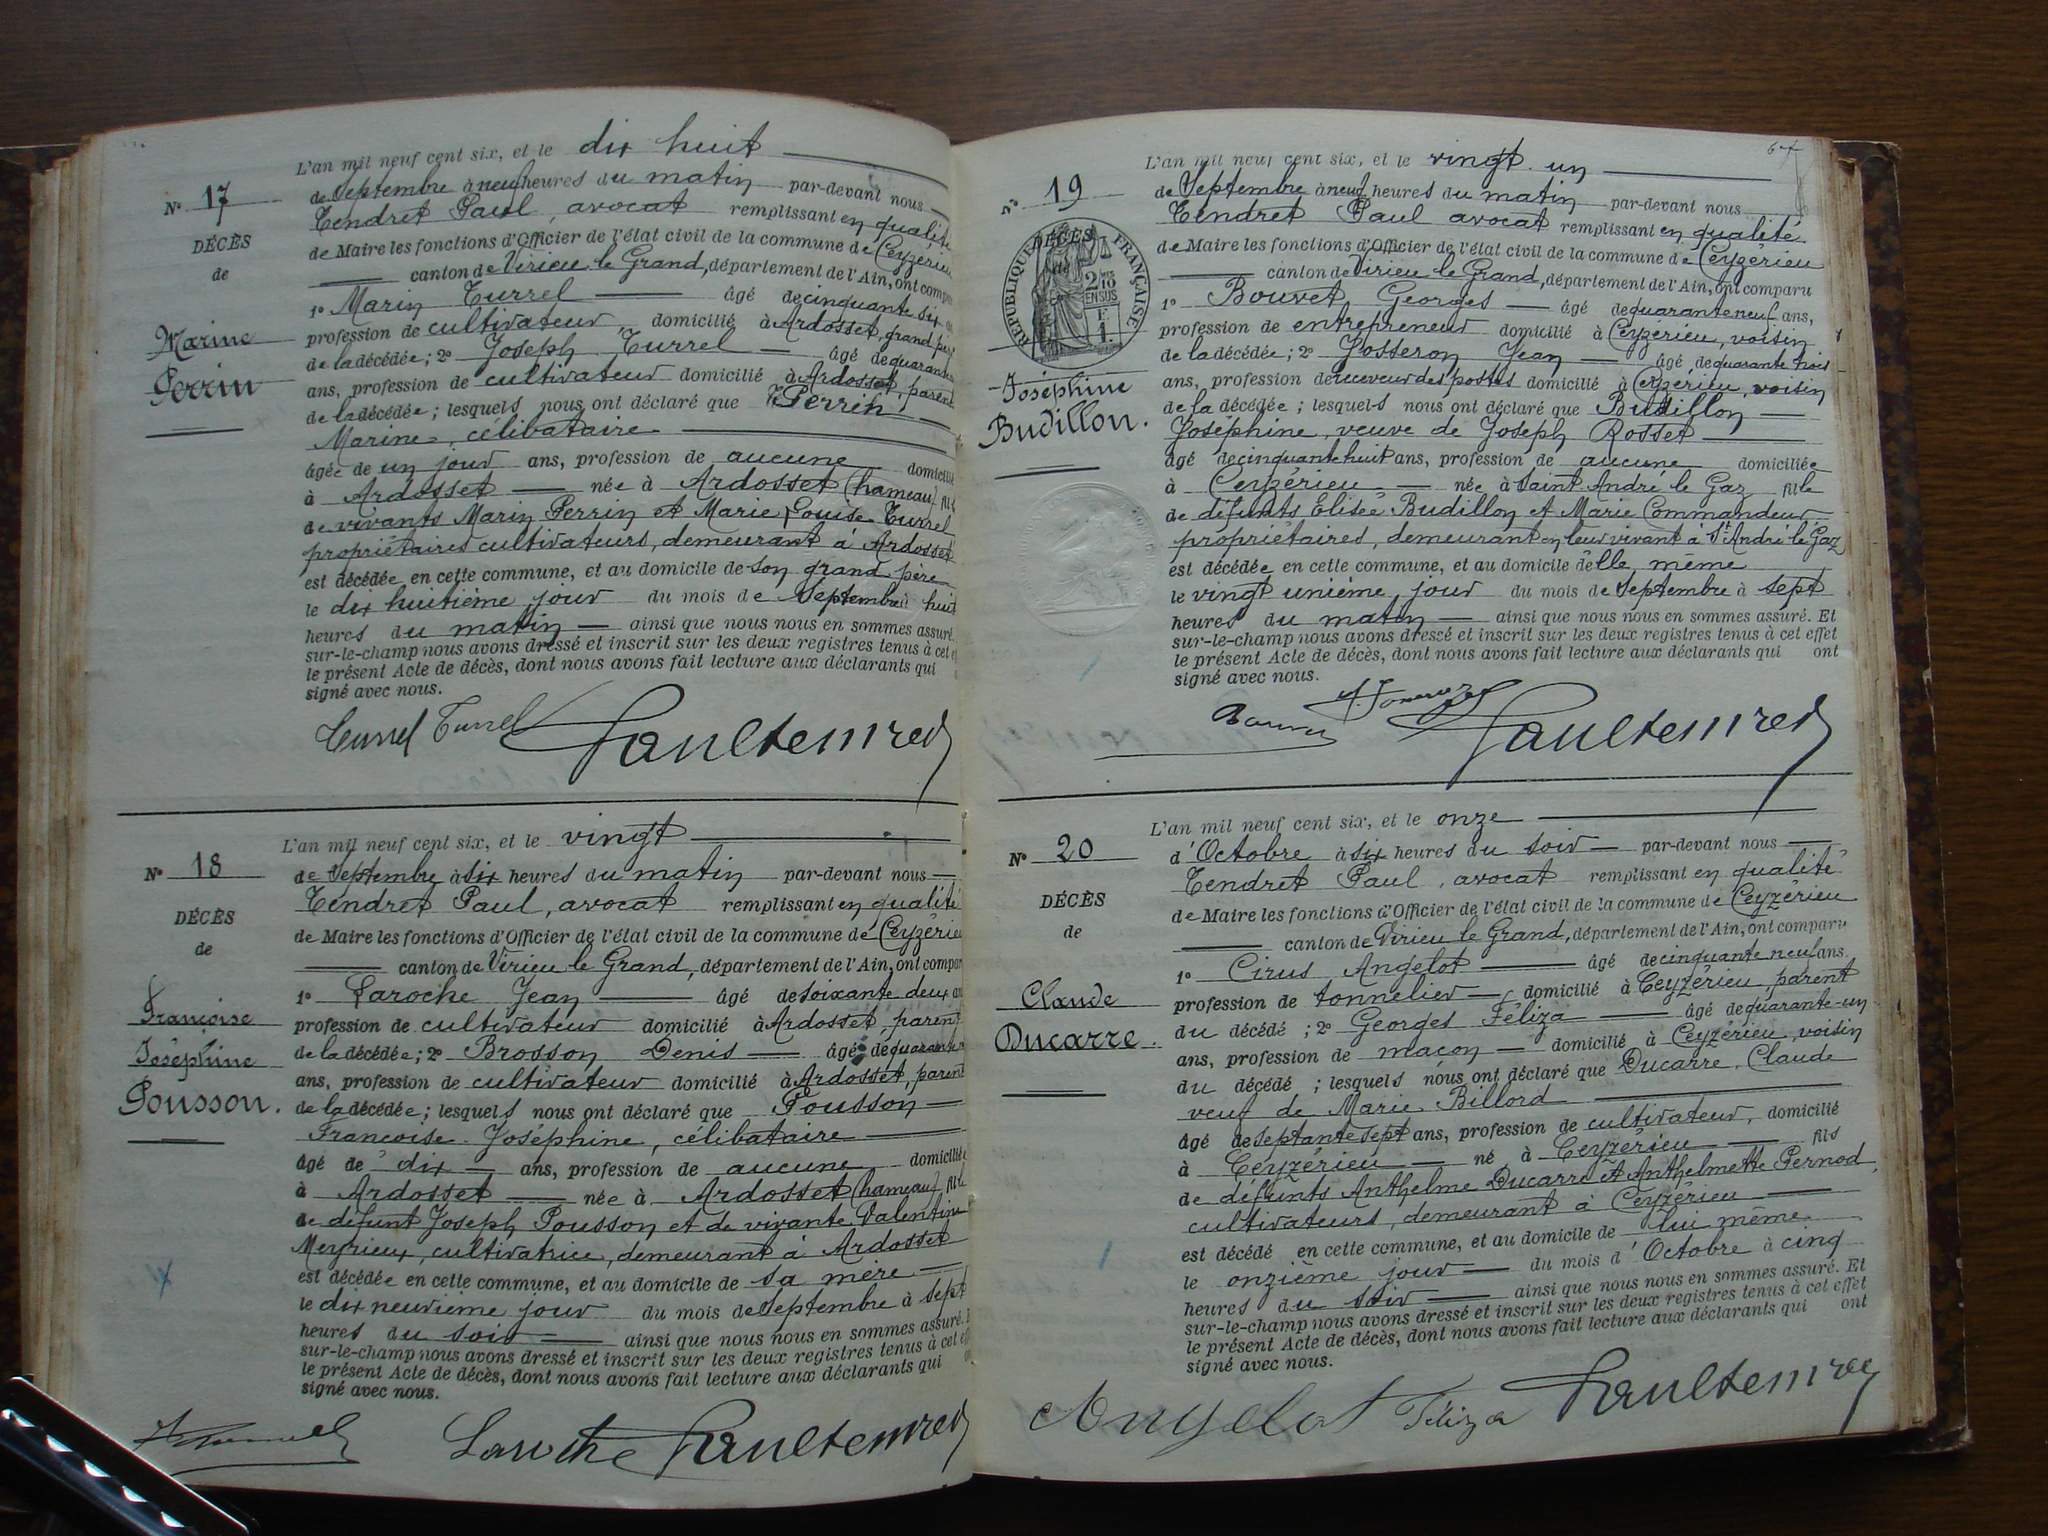 L'an mil neuf cent six, et le dix huit
de Septembre à neuf heures du matin par-devant nous
Tendret Paul, avocat remplissant en qualité
de Maire les fonctions d'Officier de l'état civil de la commune de Ceyzérieu
canton de Virieu le Grand, département de l'Ain, ont comparu
N° 17
DÉCÈS
de
Marine
Perrin
1° Marin Turrel âgé de cinquante six
profession de cultivateur, domicilié à Ardosset, grand père
de la décédée; 2° Joseph Turrel âgé de quarante
ans, profession de cultivateur domicilié à Ardosset, parent
de la décédée; lesquels nous ont déclaré que Perrin
Marine, célibataire
âgée de un jour ans, profession de aucune domiciliée
à Ardosset née à Ardosset (hameau) fille
de vivants Marin Perrin et Marie Louise Turrel
propriétaires cultivateurs, demeurant à Ardosset
est décédée en cette commune, et au domicile de son grand père
le dix huitième jour du mois de Septembre à huit
heures du matin ainsi que nous nous en sommes assuré.
sur-le-champ nous avons dressé et inscrit sur les deux registres tenus à cet
le présent Acte de décès, dont nous avons fait lecture aux déclarants qui
signé avec nous.
Turrel Turrel Paul Tendret
L'an mil neuf cent six, et le vingt
de Septembre à six heures du matin par-devant nous
Tendret Paul, avocat remplissant en qualité
de Maire les fonctions d'Officier de l'état civil de la commune de Ceyzérieu
canton de Virieu le Grand, département de l'Ain, ont comparu
N° 18
DÉCÈS
de
Françoise
Joséphine
Pousson.
1° Laroche Jean âgé de soixante deux
profession de cultivateur domicilié à Ardosset, parent
de la décédée; 2° Brosson Denis âgé de quarante
ans, profession de cultivateur domicilié à Ardosset, parent
de la décédée; lesquels nous ont déclaré que Pousson
Françoise Joséphine, célibataire
âgé de dix ans, profession de aucune domiciliée
à Ardosset née à Ardosset (hameau) fille
de défunt Joseph Pousson et de vivante Valentine
Meyrieux, cultivatrice, demeurant à Ardosset
est décédée en cette commune, et au domicile de sa mère
le dix neuvième jour du mois de Septembre à sept
heures du soir ainsi que nous nous en sommes assuré.
sur-le-champ nous avons dressé et inscrit sur les deux registres tenus à cet
le présent Acte de décès, dont nous avons fait lecture aux déclarants qui
signé avec nous.
Laroche Paul Tendret
67
L'an mil neuf cent six, et le vingt un
de Septembre à neuf heures du matin par-devant nous
Tendret Paul avocat remplissant en qualité
de Maire les fonctions d'Officier de l'état civil de la commune de Ceyzérieu
canton de Virieu le Grand, département de l'Ain, ont comparu
N° 19
DÉCÈS
de
RÉPUBLIQUE FRANÇAISE
2/10 EN SUS
1 F.
Joséphine
Budillon.
1° Bouvet Georges âgé de quarante neuf ans,
profession de entrepreneur domicilié à Ceyzérieu, voisin
de la décédée; 2° Josseron Jean âgé de quarante trois
ans, profession de receveur des postes domicilié à Ceyzérieu, voisin
de la décédée; lesquels nous ont déclaré que Budillon
Joséphine, veuve de Joseph Rosset
âgé de cinquante huit ans, profession de aucune domiciliée
à Ceyzérieu née à Saint André le Gaz fille
de défunts Elisée Budillon et Marie Commandeur
propriétaires, demeurant en leur vivant à St André le Gaz
est décédée en cette commune, et au domicile d'elle même
le vingt unième jour du mois de Septembre à sept
heures du matin ainsi que nous nous en sommes assuré. Et
sur-le-champ nous avons dressé et inscrit sur les deux registres tenus à cet effet
le présent Acte de décès, dont nous avons fait lecture aux déclarants qui ont
signé avec nous.
Paul Tendret
L'an mil neuf cent six, et le onze
d'Octobre à six heures du soir par-devant nous
Tendret Paul, avocat remplissant en qualité
de Maire les fonctions d'Officier de l'état civil de la commune de Ceyzérieu
canton de Virieu le Grand, département de l'Ain, ont comparu
N° 20
DÉCÈS
de
Claude
Ducarre.
1° Cirus Angelot âgé de cinquante neuf ans.
profession de tonnelier, domicilié à Ceyzérieu, parent
du décédé; 2° Georges Féliza âgé de quarante-un
ans, profession de maçon domicilié à Ceyzérieu, voisin
du décédé; lesquels nous ont déclaré que Ducarre, Claude
veuf de Marie Billord
âgé de septante sept ans, profession de cultivateur, domicilié
à Ceyzérieu né à Ceyzérieu fils
de défunts Anthelme Ducarre et Anthelmette Pernod,
cultivateurs, demeurant à Ceyzérieu
est décédé en cette commune, et au domicile de lui même
le onzième jour du mois d'Octobre à cinq
heures du soir ainsi que nous nous en sommes assuré. Et
sur-le-champ nous avons dressé et inscrit sur les deux registres tenus à cet effet
le présent Acte de décès, dont nous avons fait lecture aux déclarants qui ont
signé avec nous.
Angelot Féliza Paul Tendret